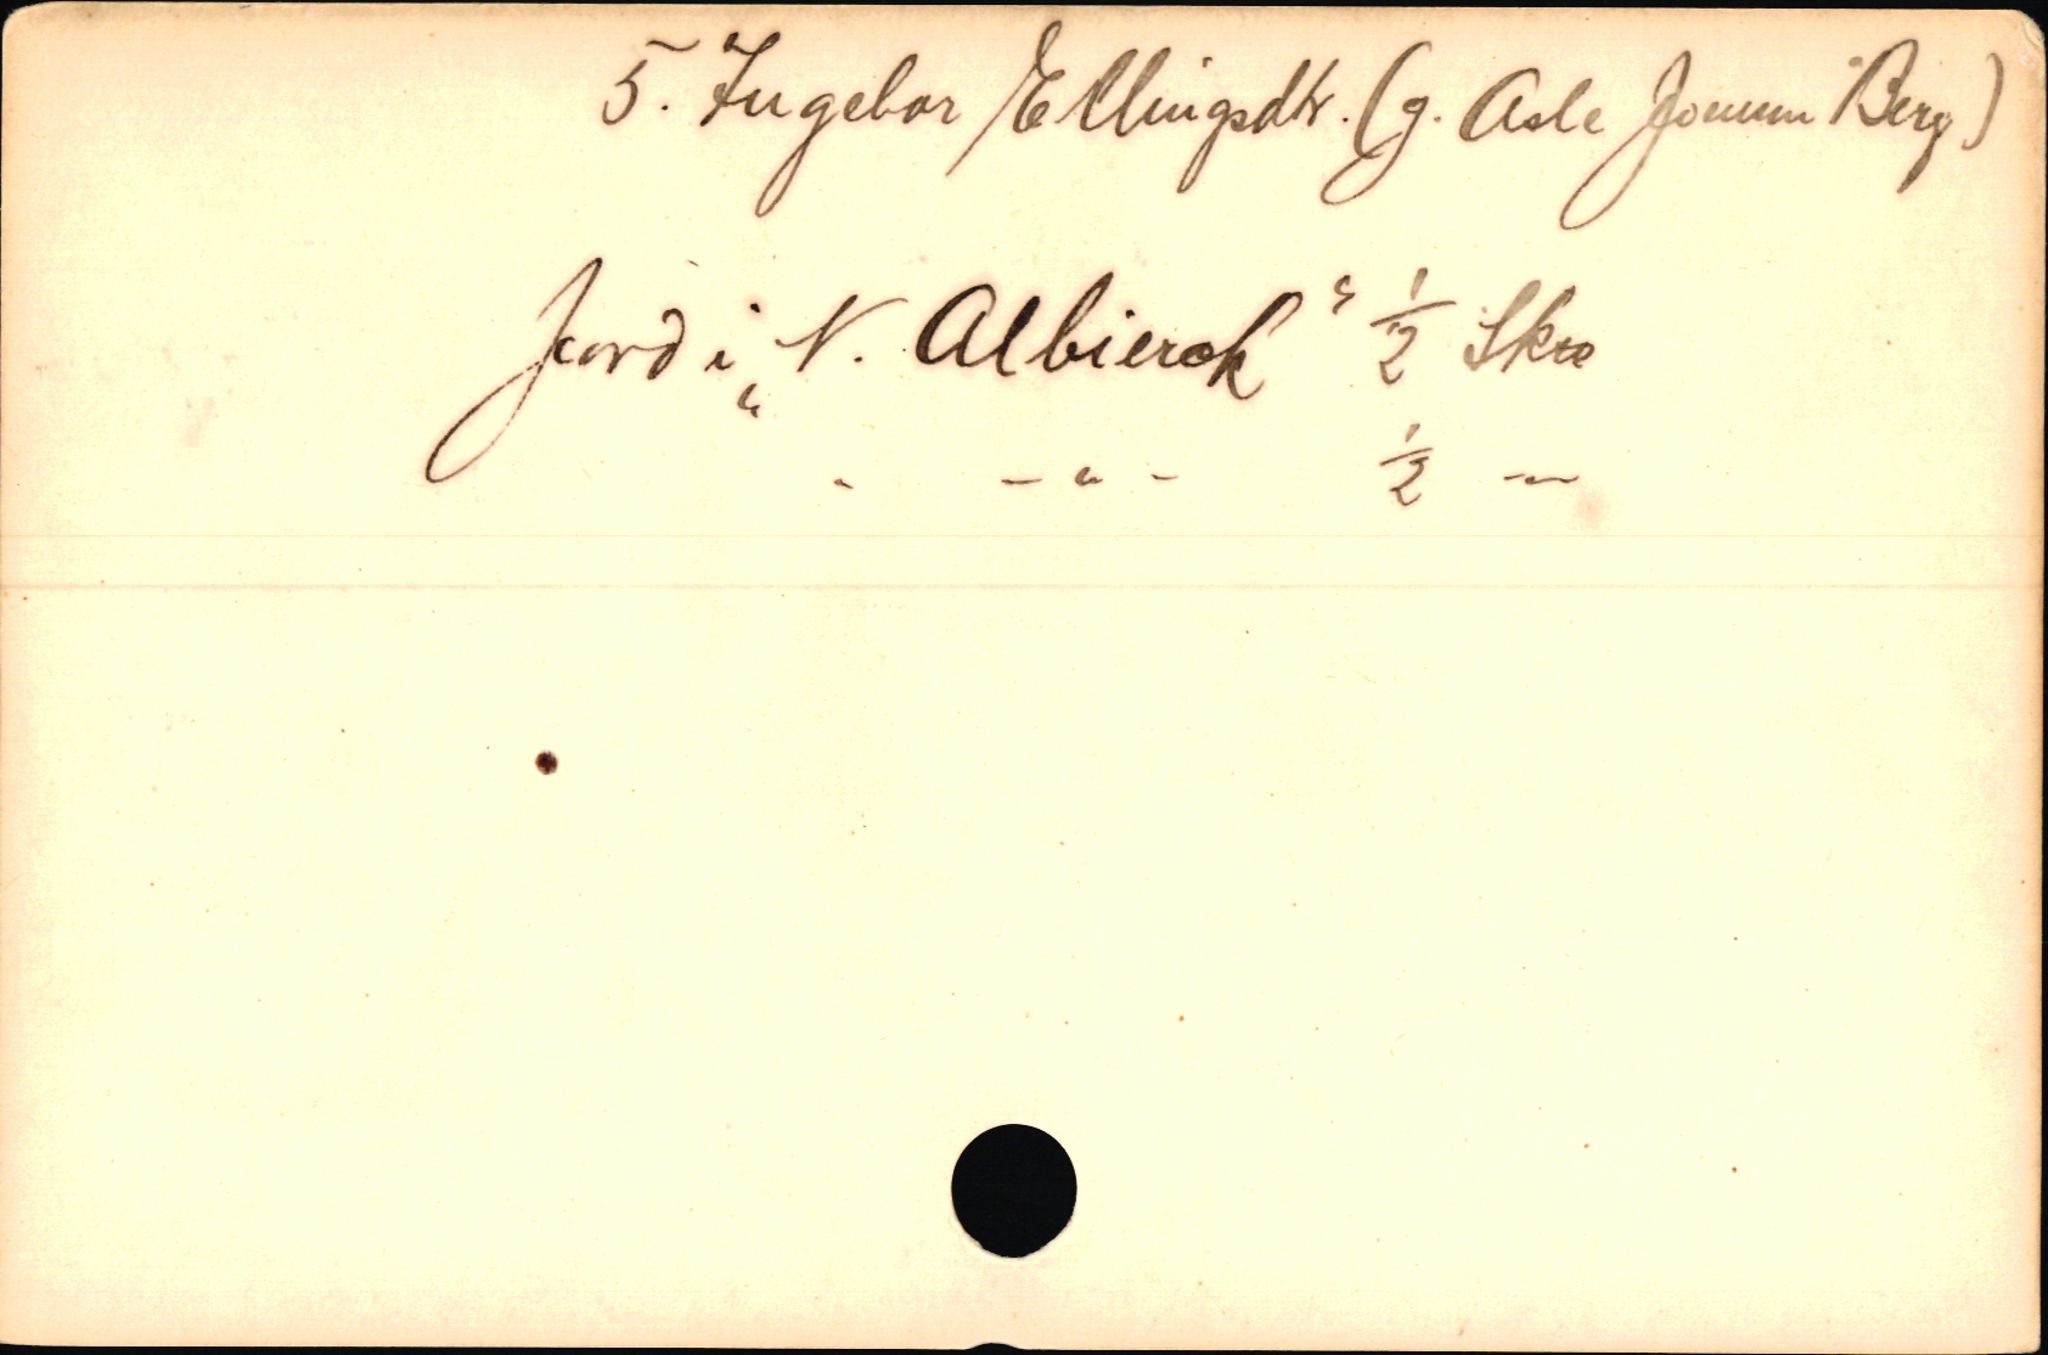 5. Ingebor Ellingsdtr. (g. Asle Jonsen Berg)
Jord i „N. Albierck“ 1/2 Skn
" - " - 1/2 -"-